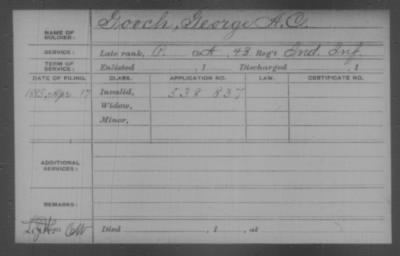 NAME OF SOLDIER: Gooch, George A. C.
SERVICE: Late rank, P. A, 43 Reg't Ind. Inf.
TERM OF SERVICE: Enlisted , 1 Discharged , 1
DATE OF FILING. CLASS. APPLICATION NO. LAW. CERTIFICATE NO.
1885, Apr. 17 Invalid, 538 837
Widow,
Minor,
ADDITIONAL SERVICES:
REMARKS:
Died , 1 , at